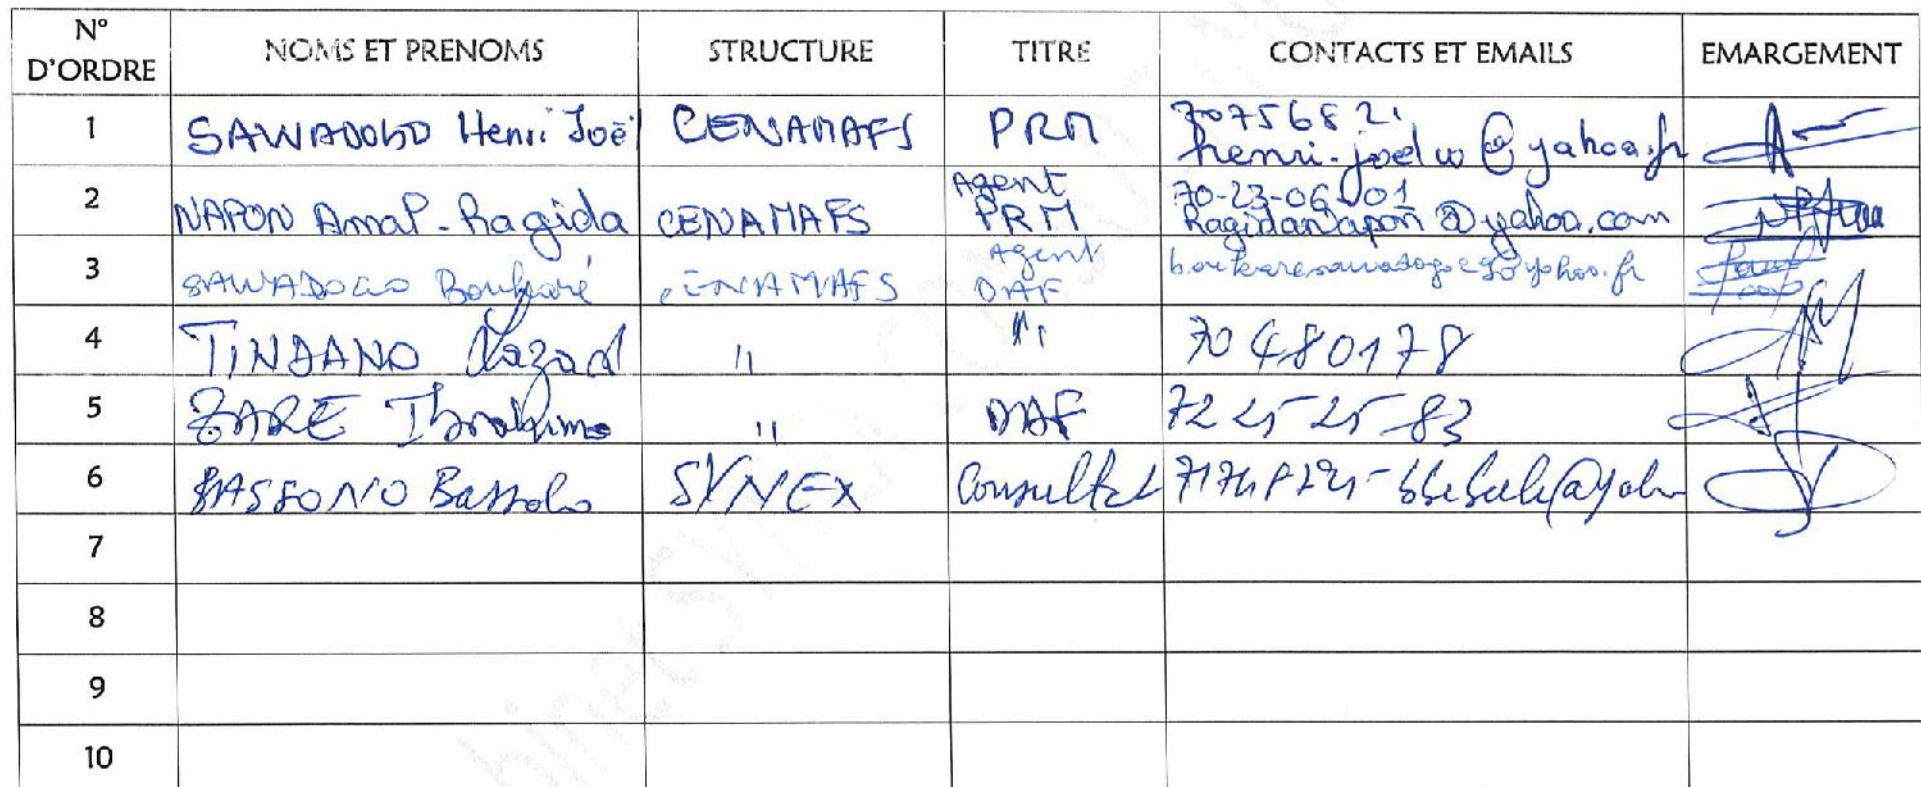 N° D'ORDRE NOMS ET PRENOMS STRUCTURE TITRE CONTACTS ET EMAILS EMARGEMENT
1 SAWADOGO Henri Joë CENAMAFS PRM 70756821
henri-joelw@yahoo.fr
2 NAPON Amal-Ragida CENAMAFS Agent PRM 70-23-06-01
Ragidanapon@yahoo.com
3 SAWADOGO Boukaré CENAMAFS Agent DAF
4 TINDANO Lazard " " 70480178
5 ZARE Ibrahima " DAF 72 25 25 83
6 BASSONO Bassolo SYNEX Consultant
7
8
9
10